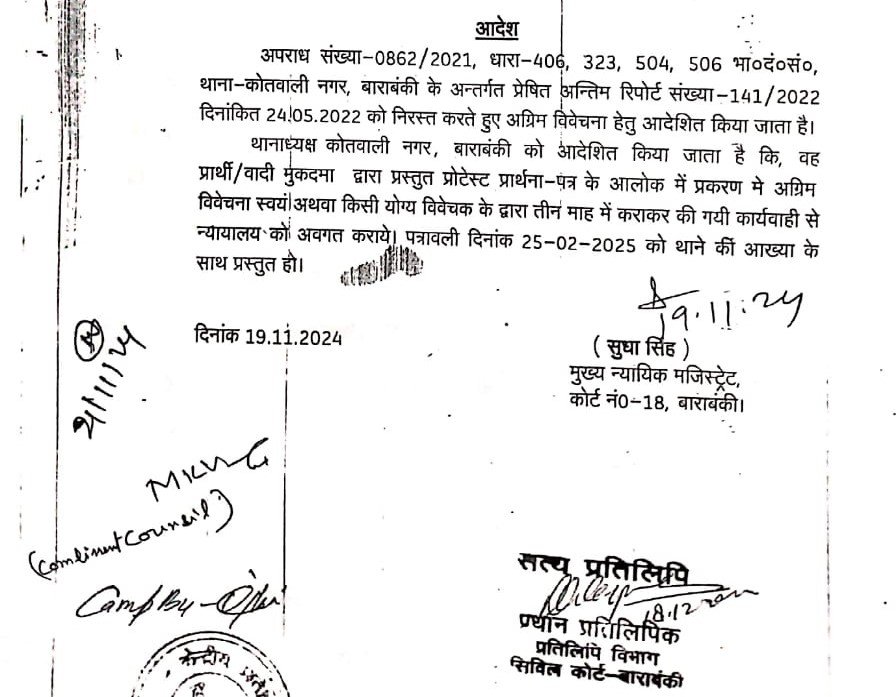 आदेश
अपराध संख्या-0862/2021, धारा-406, 323, 504, 506 भा०दं०सं०,
थाना-कोतवाली नगर, बाराबंकी के अन्तर्गत प्रेषित अन्तिम रिपोर्ट संख्या-141/2022
दिनांकित 24.05.2022 को निरस्त करते हुए अग्रिम विवेचना हेतु आदेशित किया जाता है।
थानाध्यक्ष कोतवाली नगर, बाराबंकी को आदेशित किया जाता है कि, वह
प्रार्थी/वादी मुकदमा द्वारा प्रस्तुत प्रोटेस्ट प्रार्थना-पत्र के आलोक में प्रकरण मे अग्रिम
विवेचना स्वयं अथवा किसी योग्य विवेचक के द्वारा तीन माह में कराकर की गयी कार्यवाही से
न्यायालय को अवगत कराये। पत्रावली दिनांक 25-02-2025 को थाने की आख्या के
साथ प्रस्तुत हो।
19.11.24
दिनांक 19.11.2024
( सुधा सिंह )
मुख्य न्यायिक मजिस्ट्रेट,
कोर्ट नं0-18, बाराबंकी।
21/11/24
Camp By-
सत्य प्रतिलिपि
18.12
प्रधान प्रतिलिपिक
प्रतिलिपि विभाग
सिविल कोर्ट-बाराबंकी
केन्द्रीय